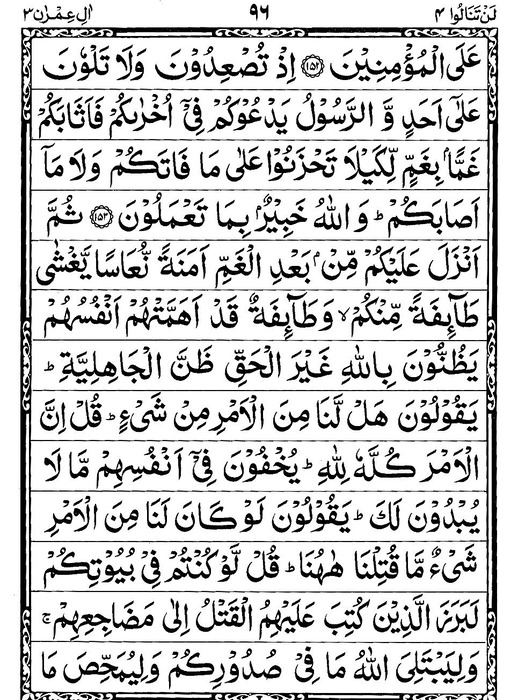 لَنْ تَنَالُوا ۴ ۹۶ اٰلِ عِمْرٰن ۳
عَلَى الْمُؤْمِنِيْنَ ﴿۱۵۲﴾ اِذْ تُصْعِدُوْنَ وَلَا تَلْوٗنَ
عَلٰٓى اَحَدٍ وَّ الرَّسُوْلُ يَدْعُوْكُمْ فِيْٓ اُخْرٰىكُمْ فَاَثَابَكُمْ
غَمًّۢا بِغَمٍّ لِّكَيْلَا تَحْزَنُوْا عَلٰى مَا فَاتَكُمْ وَلَا مَآ
اَصَابَكُمْ ؕ وَ اللّٰهُ خَبِيْرٌۢ بِمَا تَعْمَلُوْنَ ﴿۱۵۳﴾ ثُمَّ
اَنْزَلَ عَلَيْكُمْ مِّنْۢ بَعْدِ الْغَمِّ اَمَنَةً نُّعَاسًا يَّغْشٰى
طَآئِفَةً مِّنْكُمْ ۙ وَطَآئِفَةٌ قَدْ اَهَمَّتْهُمْ اَنْفُسُهُمْ
يَظُنُّوْنَ بِاللّٰهِ غَيْرَ الْحَقِّ ظَنَّ الْجَاهِلِيَّةِ ؕ
يَقُوْلُوْنَ هَلْ لَّنَا مِنَ الْاَمْرِ مِنْ شَيْءٍ ؕ قُلْ اِنَّ
الْاَمْرَ كُلَّهٗ لِلّٰهِ ؕ يُخْفُوْنَ فِيْٓ اَنْفُسِهِمْ مَّا لَا
يُبْدُوْنَ لَكَ ؕ يَقُوْلُوْنَ لَوْ كَانَ لَنَا مِنَ الْاَمْرِ
شَيْءٌ مَّا قُتِلْنَا هٰهُنَا ؕ قُلْ لَّوْ كُنْتُمْ فِيْ بُيُوْتِكُمْ
لَبَرَزَ الَّذِيْنَ كُتِبَ عَلَيْهِمُ الْقَتْلُ اِلٰى مَضَاجِعِهِمْ ۚ
وَلِيَبْتَلِيَ اللّٰهُ مَا فِيْ صُدُوْرِكُمْ وَلِيُمَحِّصَ مَا